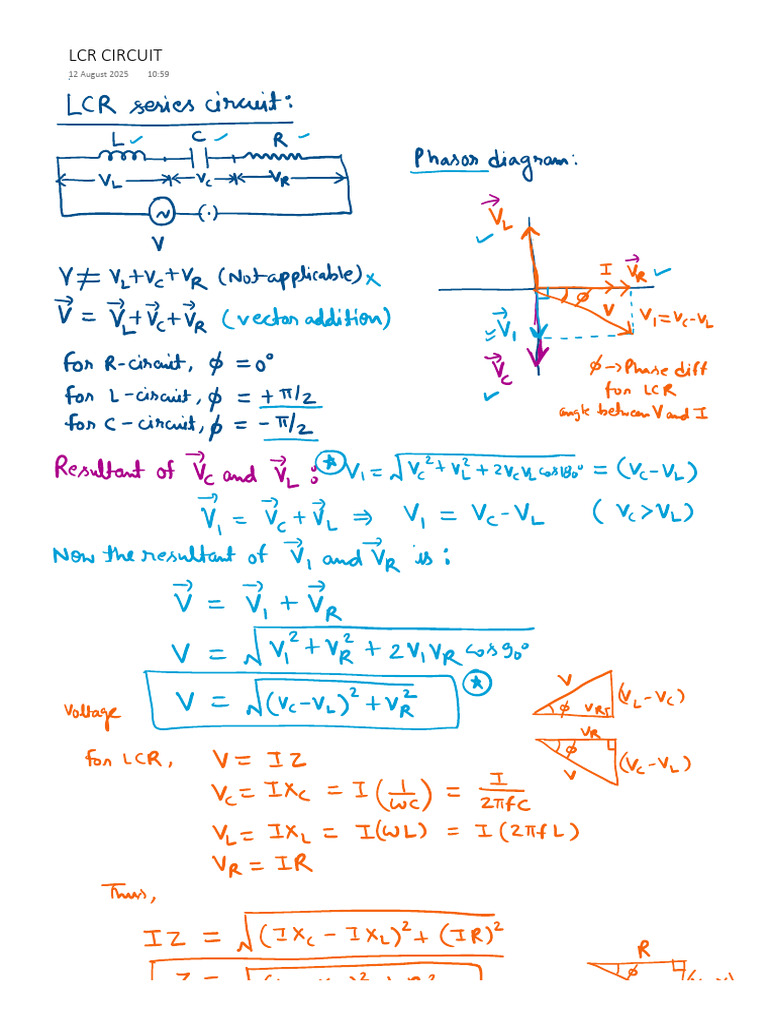 LCR CIRCUIT
12 August 2025 10:59
LCR series circuit:
L ✓ C ✓ R ✓
V_L V_C V_R
V
Phasor diagram:
V⃗_L
✓
I V⃗_R ✓
ϕ V V₁ = V_C - V_L
V⃗₁
V⃗_C
✓
ϕ → Phase diff
for LCR
angle between V and I
V ≠ V_L + V_C + V_R (Not applicable) ×
V⃗ = V⃗_L + V⃗_C + V⃗_R (vector addition)
for R-circuit, ϕ = 0°
for L-circuit, ϕ = +π/2
for C-circuit, ϕ = -π/2
Resultant of V⃗_C and V⃗_L : ★ V₁ = √(V_C² + V_L² + 2V_C V_L cos180°) = (V_C - V_L)
V⃗₁ = V⃗_C + V⃗_L ⇒ V₁ = V_C - V_L (V_C > V_L)
Now the resultant of V⃗₁ and V⃗_R is:
V⃗ = V⃗₁ + V⃗_R
V = √(V₁² + V_R² + 2V₁V_R cos90°)
V = √((V_C - V_L)² + V_R²) ★
Voltage
V (V_L - V_C)
ϕ V_R
V_R
ϕ (V_C - V_L)
V
for LCR, V = IZ
V_C = IX_C = I(1/ωC) = I/2πfC
V_L = IX_L = I(ωL) = I(2πfL)
V_R = IR
Thus,
IZ = √((IX_C - IX_L)² + (IR)²)
R
ϕ